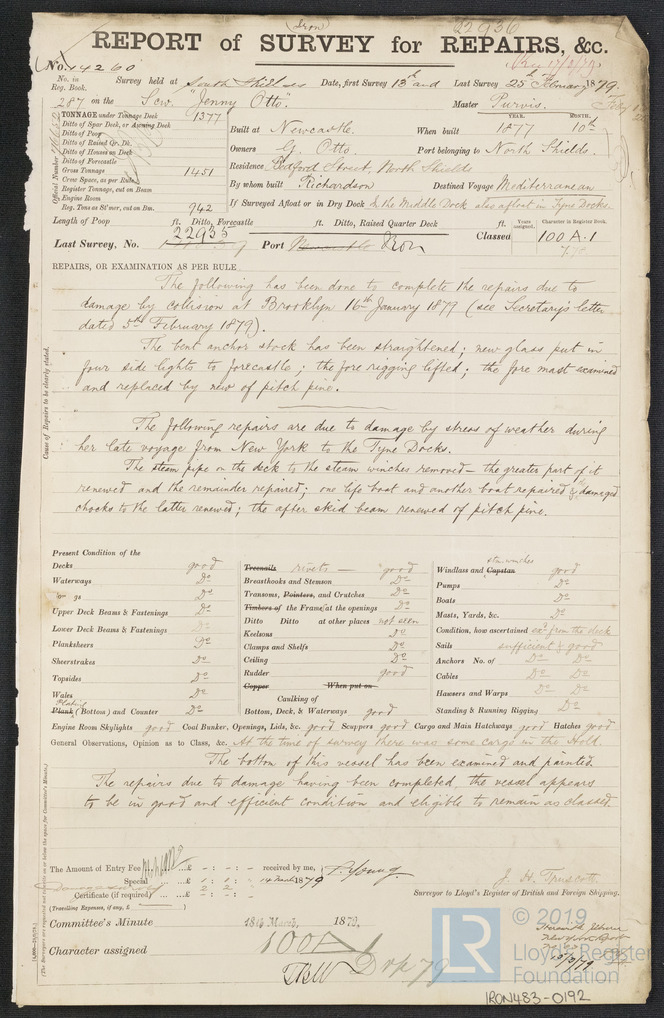 22936
(Iron)
REPORT of SURVEY for REPAIRS, &c.
No. 14260
No. in Reg. Book. Survey held at South Shields Date, first Survey 13th and Last Survey 25th February 1879
287 on the Scw. "Jenny Otto". Master Purvis.
TONNAGE under Tonnage Deck 1377
Ditto of Spar Deck, or Awning Deck
Ditto of Poop
Ditto of Raised Qr. Dk.
Ditto of Houses on Deck
Ditto of Forecastle
Gross Tonnage 1451
Crew Space, as per Rule
Register Tonnage, cut on Beam
Engine Room
Reg. Tons as St'mer, cut on Bm. 942
Official Number
YEAR. MONTH.
Built at Newcastle. When built 1877 10th
Owners G. Otto. Port belonging to North Shields.
Residence Bedford Street, North Shields
By whom built Richardson Destined Voyage Mediterranean
If Surveyed Afloat or in Dry Dock In the Middle Dock also afloat in Tyne Docks.
Length of Poop ft. Ditto, Forecastle ft. Ditto, Raised Quarter Deck ft.
22935
Last Survey, No. Port Iron
Classed Years assigned. Character in Register Book. 100 A.1
REPAIRS, OR EXAMINATION AS PER RULE
The following has been done to complete the repairs due to
damage by collision at Brooklyn 16th January 1879 (see Secretary's letter
dated 5th February 1879).
The bent anchor stock has been straightened; new glass put in
four side lights to forecastle; the fore rigging lifted; the fore mast examined
and replaced by new of pitch pine.
Cause of Repairs to be clearly stated.
The following repairs are due to damage by stress of weather during
her late voyage from New York to the Tyne Docks.
The steam pipe on the deck to the steam winches removed – the greater part of it
renewed and the remainder repaired; one life boat and another boat repaired & damaged
chocks to the latter renewed; the after skid beam renewed of pitch pine.
Present Condition of the
Decks good
Waterways Do
Upper Deck Beams & Fastenings Do
Lower Deck Beams & Fastenings
Planksheers Do
Sheerstrakes Do
Topsides Do
Wales Do
Plating
Plank (Bottom) and Counter Do
Treenails rivets — good
Breasthooks and Stemson Do
Transoms, Pointers, and Crutches Do
Timbers of the Frame at the openings Do
Ditto Ditto at other places not seen
Keelsons Do
Clamps and Shelfs Do
Ceiling Do
Rudder good
Copper When put on
Caulking of
Bottom, Deck, & Waterways good
Windlass and Capstan good
Pumps Do
Boats Do
Masts, Yards, &c. Do
Condition, how ascertained exd from the deck
Sails sufficient & good
Anchors No. of Do Do
Cables Do Do
Hawsers and Warps Do Do
Standing & Running Rigging Do
Engine Room Skylights good Coal Bunker, Openings, Lids, &c. good Scuppers good Cargo and Main Hatchways good Hatches good
General Observations, Opinion as to Class, &c. At the time of survey there was some cargo in the hold.
The bottom of this vessel has been examined and painted.
The repairs due to damage having been completed, the vessel appears
to be in good and efficient condition and eligible to remain as classed.
The Amount of Entry Fee ...£ - : - : - received by me, T. Young.
Special ...£ 1 : 1 : - 14 March 1879
Certificate (if required) ...£ 2 2 -
(Travelling Expenses, if any, £ )
J. H. Truscott
Surveyor to Lloyd's Register of British and Foreign Shipping.
Committee's Minute 18th March, 1879.
Character assigned 100 A1
© 2019
LR
Lloyd's Register
Foundation
IRON483-0192